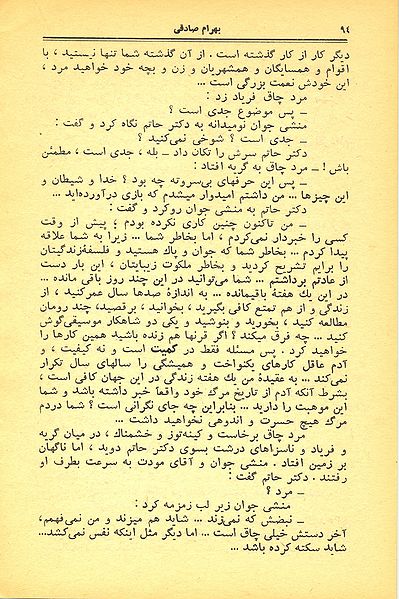 ۹٤ بهرام صادقی
دیگر کار از کار گذشته است . از آن گذشته شما تنها نیستید ، با
اقوام و همسایگان و همشهریان و زن و بچه خود خواهید مرد ،
این خودش نعمت بزرگی است ...
مرد چاق فریاد زد :
ــ پس موضوع جدی است ؟
منشی جوان نومیدانه به دکتر حاتم نگاه کرد و گفت :
ــ جدی است ؟ شوخی نمی‌کنید ؟
دکتر حاتم سرش را تکان داد ــ بله ، جدی است ، مطمئن
باش ! ــ مرد چاق به گریه افتاد :
ــ پس این حرفهای بی‌سروته چه بود ؟ خدا و شیطان و
این چیزها ... من داشتم امیدوار میشدم که بازی درآورده‌اید ...
دکتر حاتم به منشی جوان روکرد و گفت :
ــ من تاکنون چنین کاری نکرده بودم ، پیش از وقت
کسی را خبردار نمی‌کردم ، اما بخاطر شما ... زیرا به شما علاقه
پیدا کردم ... بخاطر شما که جوان و پاك هستید و فلسفهٔ زندگیتان
را برایم تشریح کردید و بخاطر ملکوت زیبایتان ، این بار دست
از عادتم برداشتم ... شما می‌توانید در این چند روز باقی مانده ...
در این یك هفتهٔ باقیمانده ... به اندازهٔ صدها سال عمرکنید ، از
زندگی و از هم تمتع کافی بگیرید ، بخوانید ، برقصید، چند رومان
مطالعه کنید ، بخورید و بنوشید و یکی دو شاهکار موسیقی‌گوش
کنید ... چه فرق میکند ؟ اگر قرنها هم زنده باشید همین کارها را
خواهید کرد . پس مسئله فقط در کمیت است و نه کیفیت ، و
آدم عاقل کارهای یکنواخت و همیشگی را سالهای سال تکرار
نمی‌کند ... به عقیدهٔ من یك هفته زندگی در این جهان کافی است ،
بشرط آنکه آدم از تاریخ مرگ خود واقعاً خبر داشته باشد و شما
این موهبت را دارید ... بنابراین چه جای نگرانی است ؟ شما دردم
مرگ هیچ حسرت و اندوهی نخواهید داشت ...
مرد چاق برخاست و کینه‌توز و خشمناك ، در میان گریه
و فریاد و ناسزاهای درشت بسوی دکتر حاتم دوید ، اما ناگهان
بر زمین افتاد . منشی جوان و آقای مودت به سرعت بطرف او
رفتند . دکتر حاتم گفت :
ــ مرد ؟
منشی جوان زیر لب زمزمه کرد :
ــ نبضش که نمی‌زند ... شاید هم میزند و من نمی‌فهمم،
آخر دستش خیلی چاق است ... اما دیگر مثل اینکه نفس نمی‌کشد...
شاید سکته کرده باشد ...